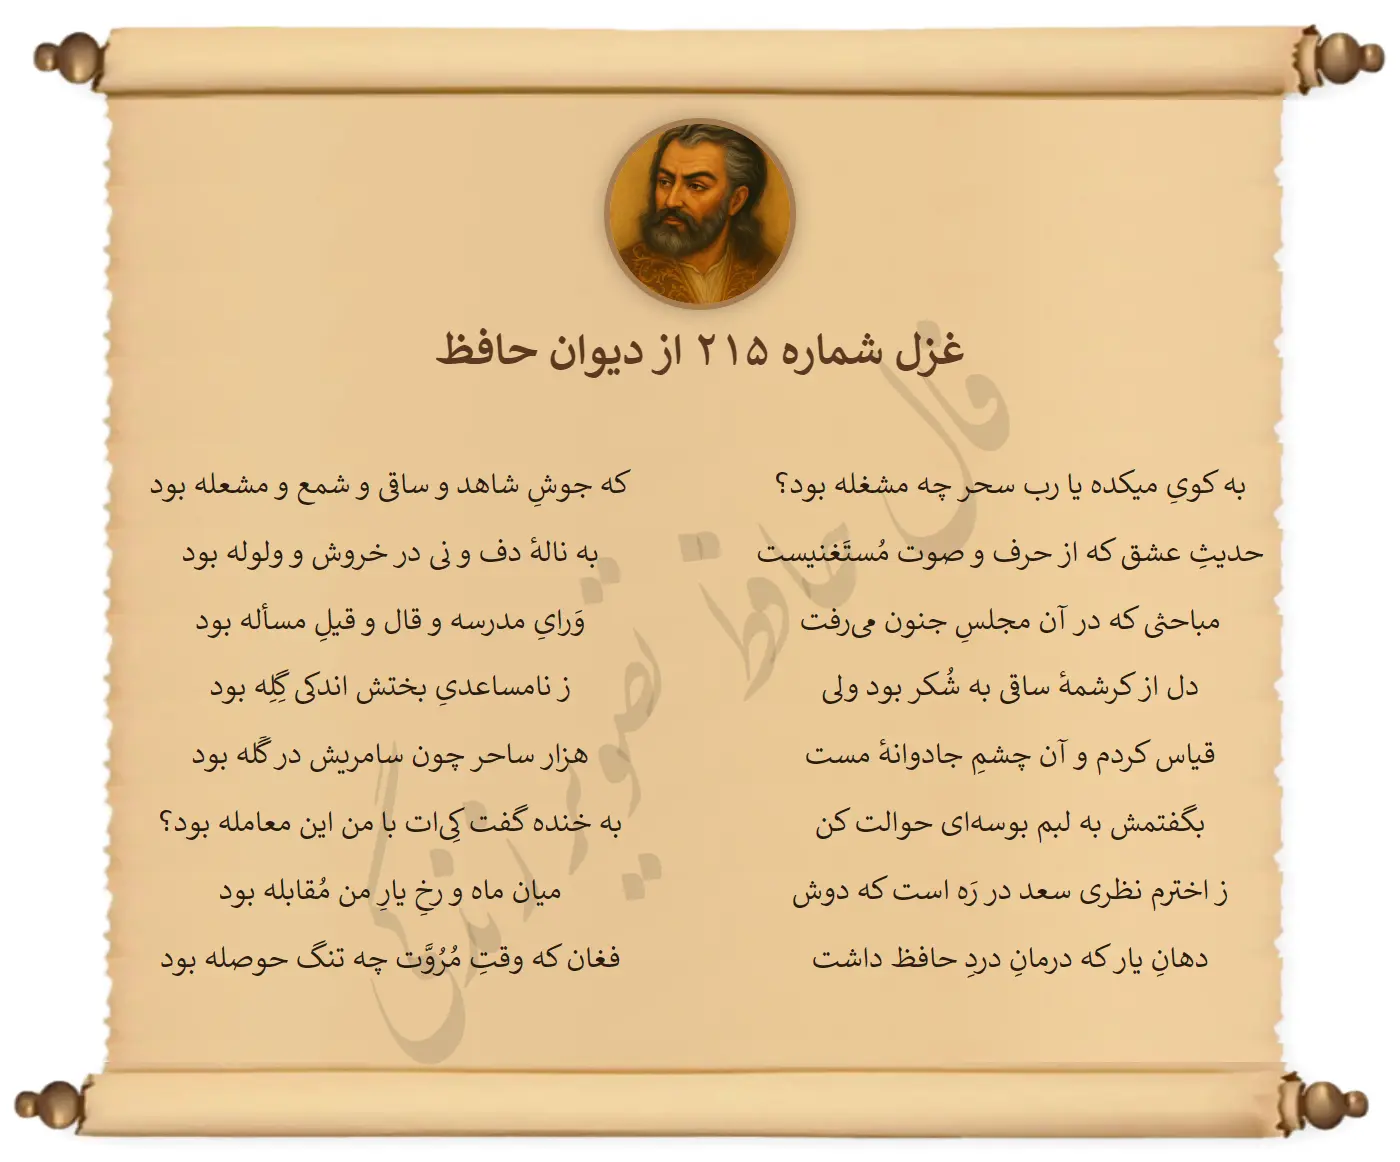 غزل شماره ۲۱۵ از دیوان حافظ
به کویِ میکده یا رب سحر چه مشغله بود؟ که جوشِ شاهد و ساقی و شمع و مشعله بود
حدیثِ عشق که از حرف و صوت مُستَغنیست به نالهٔ دف و نی در خروش و ولوله بود
مباحثی که در آن مجلسِ جنون می‌رفت وَرایِ مدرسه و قال و قیلِ مسأله بود
دل از کرشمهٔ ساقی به شُکر بود ولی ز نامساعدیِ بختش اندکی گِلِه بود
قیاس کردم و آن چشمِ جادوانهٔ مست هزار ساحر چون سامریش در گَله بود
بگفتمش به لبم بوسه‌ای حوالت کن به خنده گفت کِی‌ات با من این معامله بود؟
ز اخترم نظری سعد در رَه است که دوش میان ماه و رخِ یارِ من مُقابله بود
دهانِ یار که درمانِ دردِ حافظ داشت فغان که وقتِ مُرُوَّت چه تنگ حوصله بود
فال حافظ تصویر زندگی